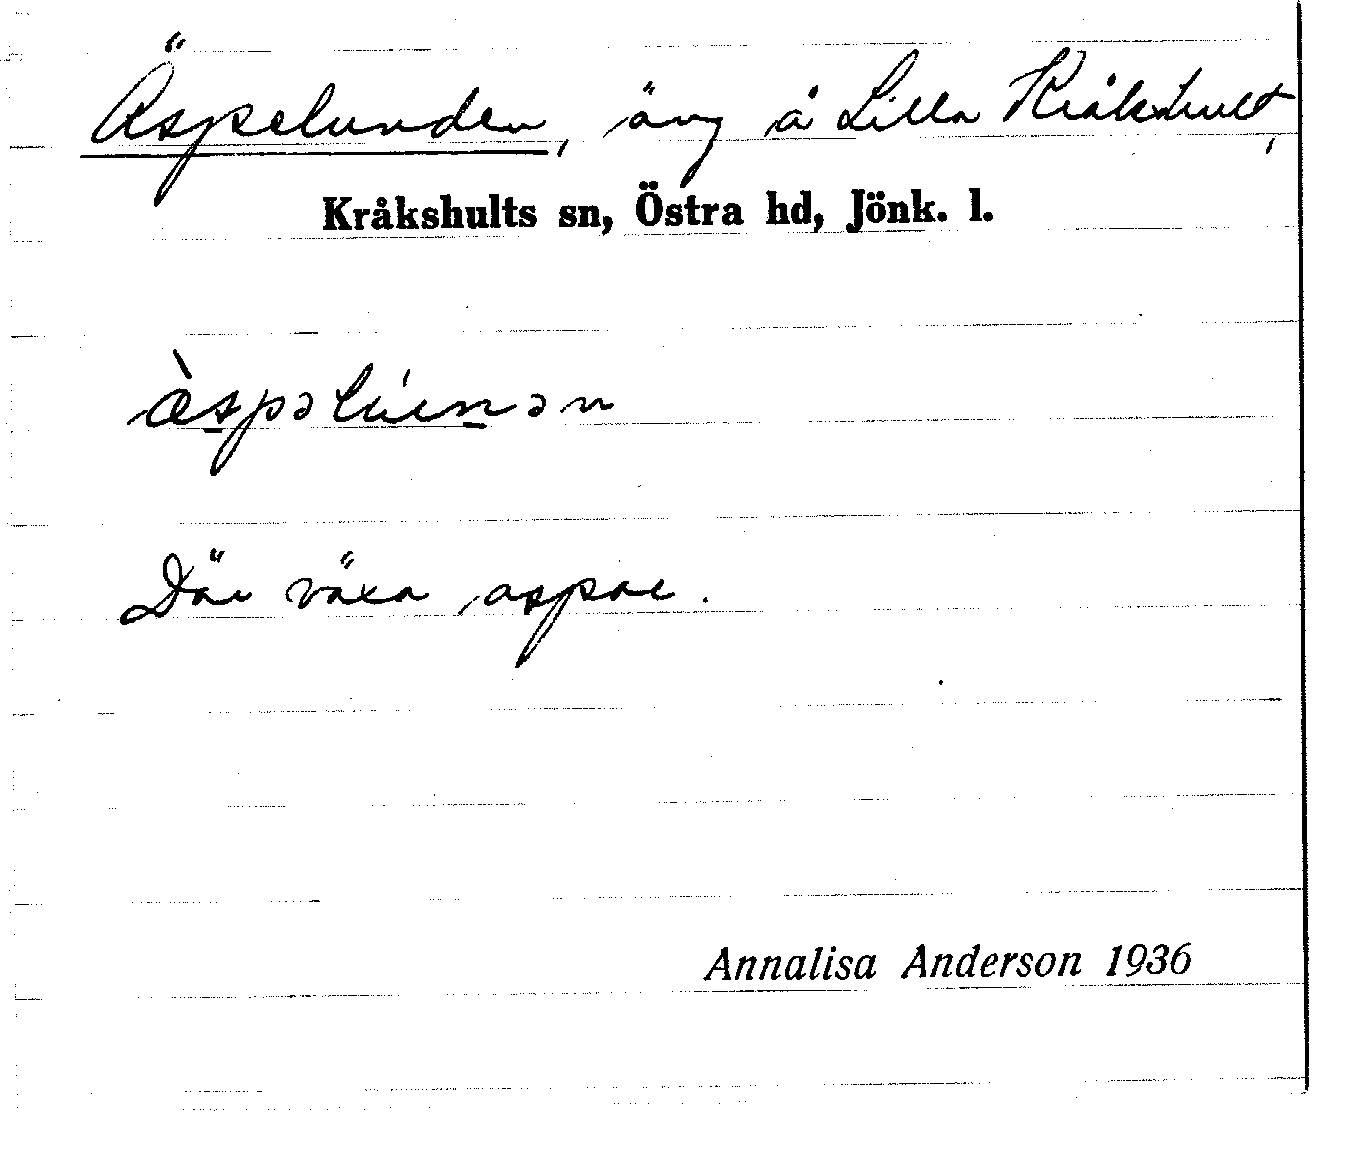 Äspelunden, äng å Lilla Kråkshult,
Kråkshults sn, Östra hd, Jönk. l.
æ̀spəlúnən
Där växa aspar.
Annalisa Anderson 1936